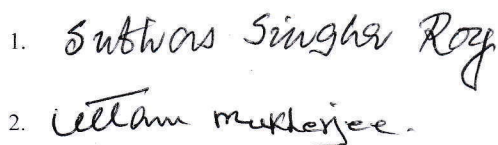 1. Subhas Singha Roy
2. Uttam Mukherjee.